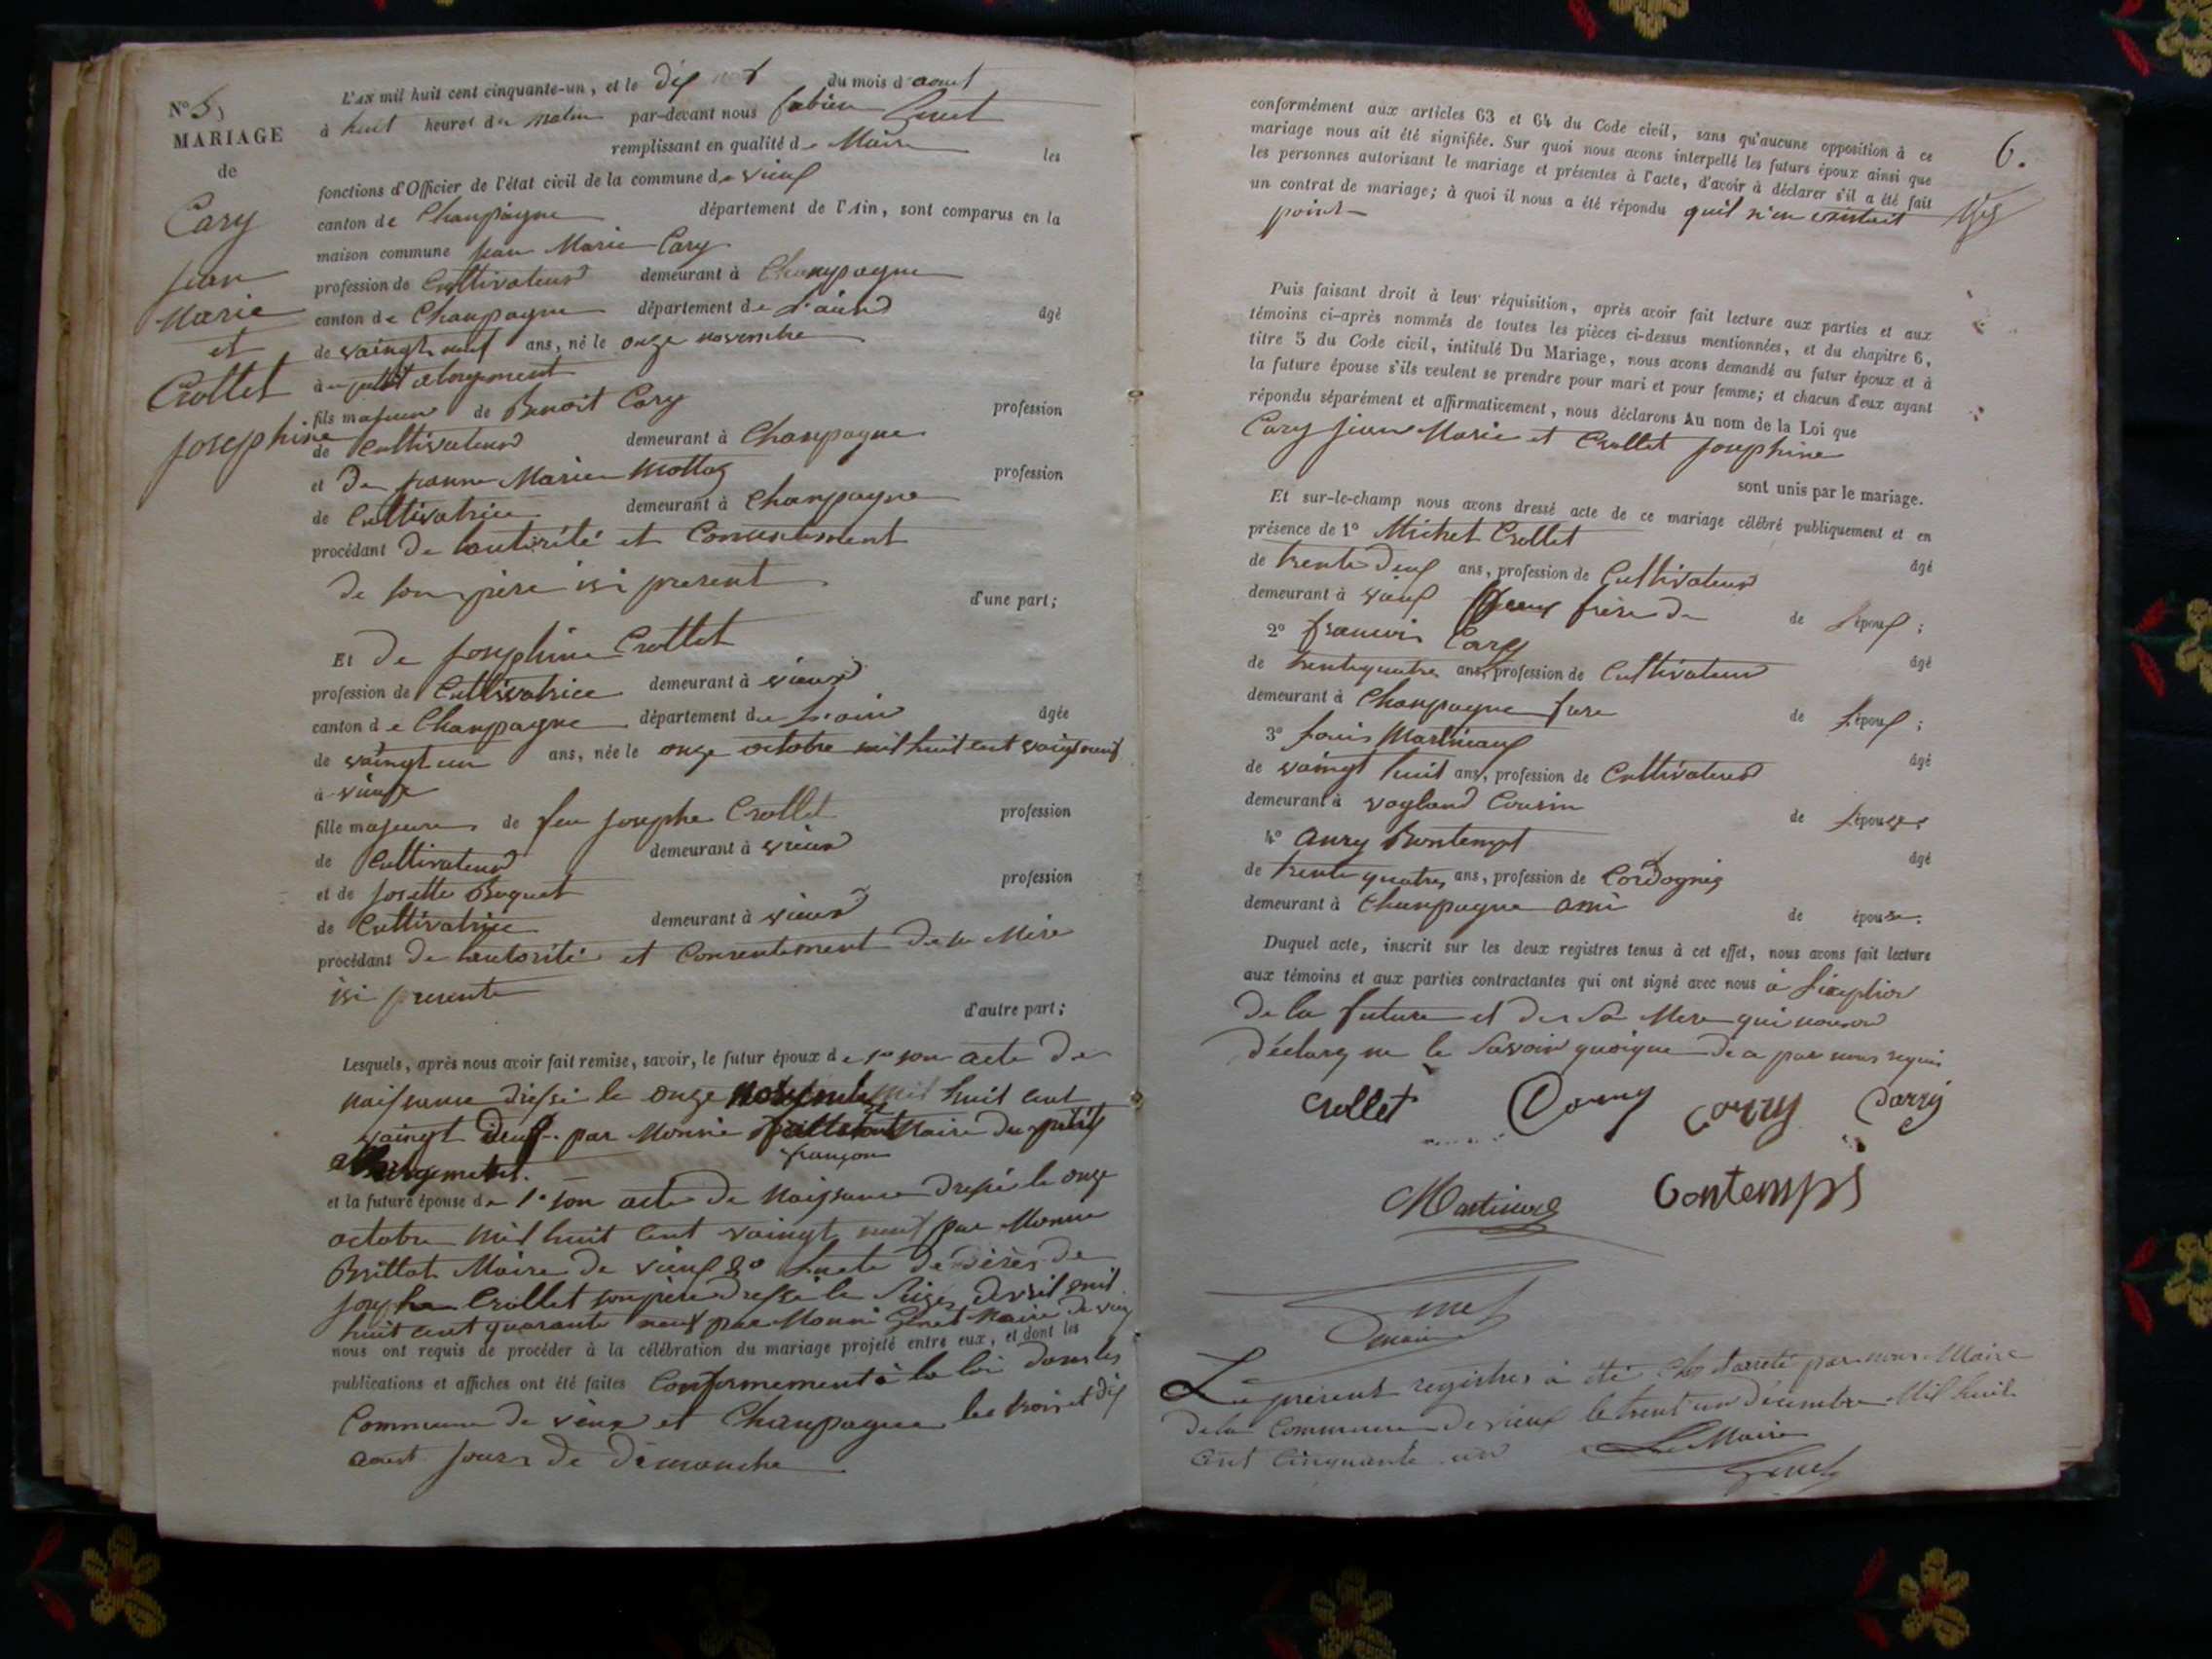 N° 5
MARIAGE
de
Cary
Jean
Marie
et
Crollet
Josephine
L'AN mil huit cent cinquante-un, et le dix du mois d'aout
à huit heures du matin par-devant nous fabien Genet
remplissant en qualité de Maire les
fonctions d'Officier de l'état civil de la commune de vieux
canton de Champagne département de l'Ain, sont comparus en la
maison commune Jean Marie Cary
profession de Cultivateur demeurant à Champagne
canton de Champagne département de
âgé
de vaingt neuf ans, né le onze novembre
à petit abergement
fils majeur de Benoit Cary profession
de Cultivateur demeurant à Champagne
et de Jeanne Marie Mottaz profession
de Cultivatrice demeurant à Champagne
procédant De lautorité et Consentement
de son père isi present
d'une part;
Et De Josephine Crollet
profession de Cultivatrice demeurant à vieux
canton de Champagne département de L'ain âgée
de vaingt un ans, née le onze octobre mil huit cent vaingt neuf
à vieux
fille majeure de feu Josephe Crollet profession
de Cultivateur demeurant à vieux
et de Josette Buquet profession
de Cultivatrice demeurant à vieux
procédant De lautorité et Consentement de sa Mère
isi presente
d'autre part;
Lesquels, après nous avoir fait remise, savoir, le futur époux de 1° son acte De
naissance dressé le onze novembre mil huit cent
vaingt deux par Monsie Maire du petit
françon
abergement.
et la future épouse de 1° son acte De Naissance dressé le onze
octobre mil huit cent vaingt neuf par Monsie
Brillat Maire De vieux 2° lacte de décès de
Josephe Crollet son père dressé le seize davril mil
huit cent quarante neuf par Monsie Genet Maire de vieux
nous ont requis de procéder à la célébration du mariage projeté entre eux, et dont les
publications et affiches ont été faites Conformement à la loi dans les
Commune De vieux et Champagne les trois et dix
aout jours De Dimanche
6.
conformément aux articles 63 et 64 du Code civil, sans qu'aucune opposition à ce
mariage nous ait été signifiée. Sur quoi nous avons interpellé les futurs époux ainsi que
les personnes autorisant le mariage et présentes à l'acte, d'avoir à déclarer s'il a été fait
un contrat de mariage; à quoi il nous a été répondu quil n'en existait
point
Puis faisant droit à leur réquisition, après avoir fait lecture aux parties et aux
témoins ci-après nommés de toutes les pièces ci-dessus mentionnées, et du chapitre 6,
titre 5 du Code civil, intitulé Du Mariage, nous avons demandé au futur époux et à
la future épouse s'ils veulent se prendre pour mari et pour femme; et chacun d'eux ayant
répondu séparément et affirmativement, nous déclarons Au nom de la Loi que
Cary Jean Marie et Crollet Josephine
sont unis par le mariage.
Et sur-le-champ nous avons dressé acte de ce mariage célébré publiquement et en
présence de 1° Michel Crollet âgé
de trente Deux ans, profession de Cultivateur
demeurant à vieux frère De de Lépoux ;
2° francois Cary âgé
de trente quatre ans, profession de Cultivateur
demeurant à Champagne frere de Lépoux ;
3° Louis Martinaux âgé
de vaingt huit ans, profession de Cultivateur
demeurant à vogland Cousin de Lépouse;
4° Anry Bontempt âgé
de trente quatre ans, profession de Cordognié
demeurant à Champagne ami de épouse.
Duquel acte, inscrit sur les deux registres tenus à cet effet, nous avons fait lecture
aux témoins et aux parties contractantes qui ont signé avec nous à Lixeption
De la future et De sa Mère qui
Déclare ne le savoir quoique De a par nous requis
Crollet Carry Carry
Bontemps
Genet
Le présent registre à été Clos darreté par nous Maire
De la Commune De vieux le trent un décembre Mil huit
Cent Cinquante un Le Maire
Genet